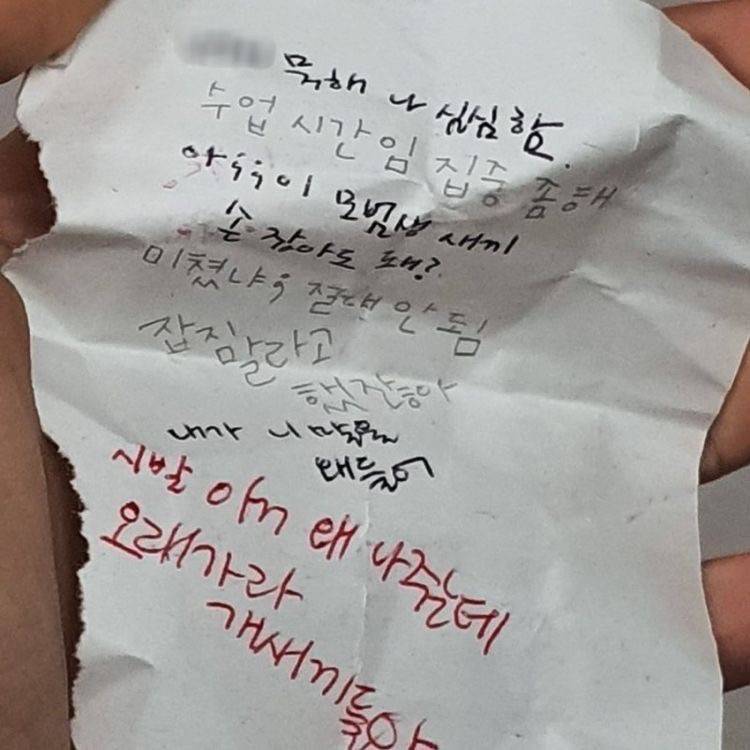 뭐해 나 심심함.
수업 시간임 집중 좀해
아;; 이 모범생 새끼
손 잡아도 돼?
미쳤냐; 절대 안 됨
잡지말라고
했잖아
내가 니 말을
왜들어
시발 아니 왜 나죽는데
오래가라
개새끼들아